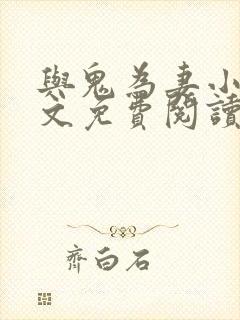 與鬼為妻小
文免費閱讀
齊白石